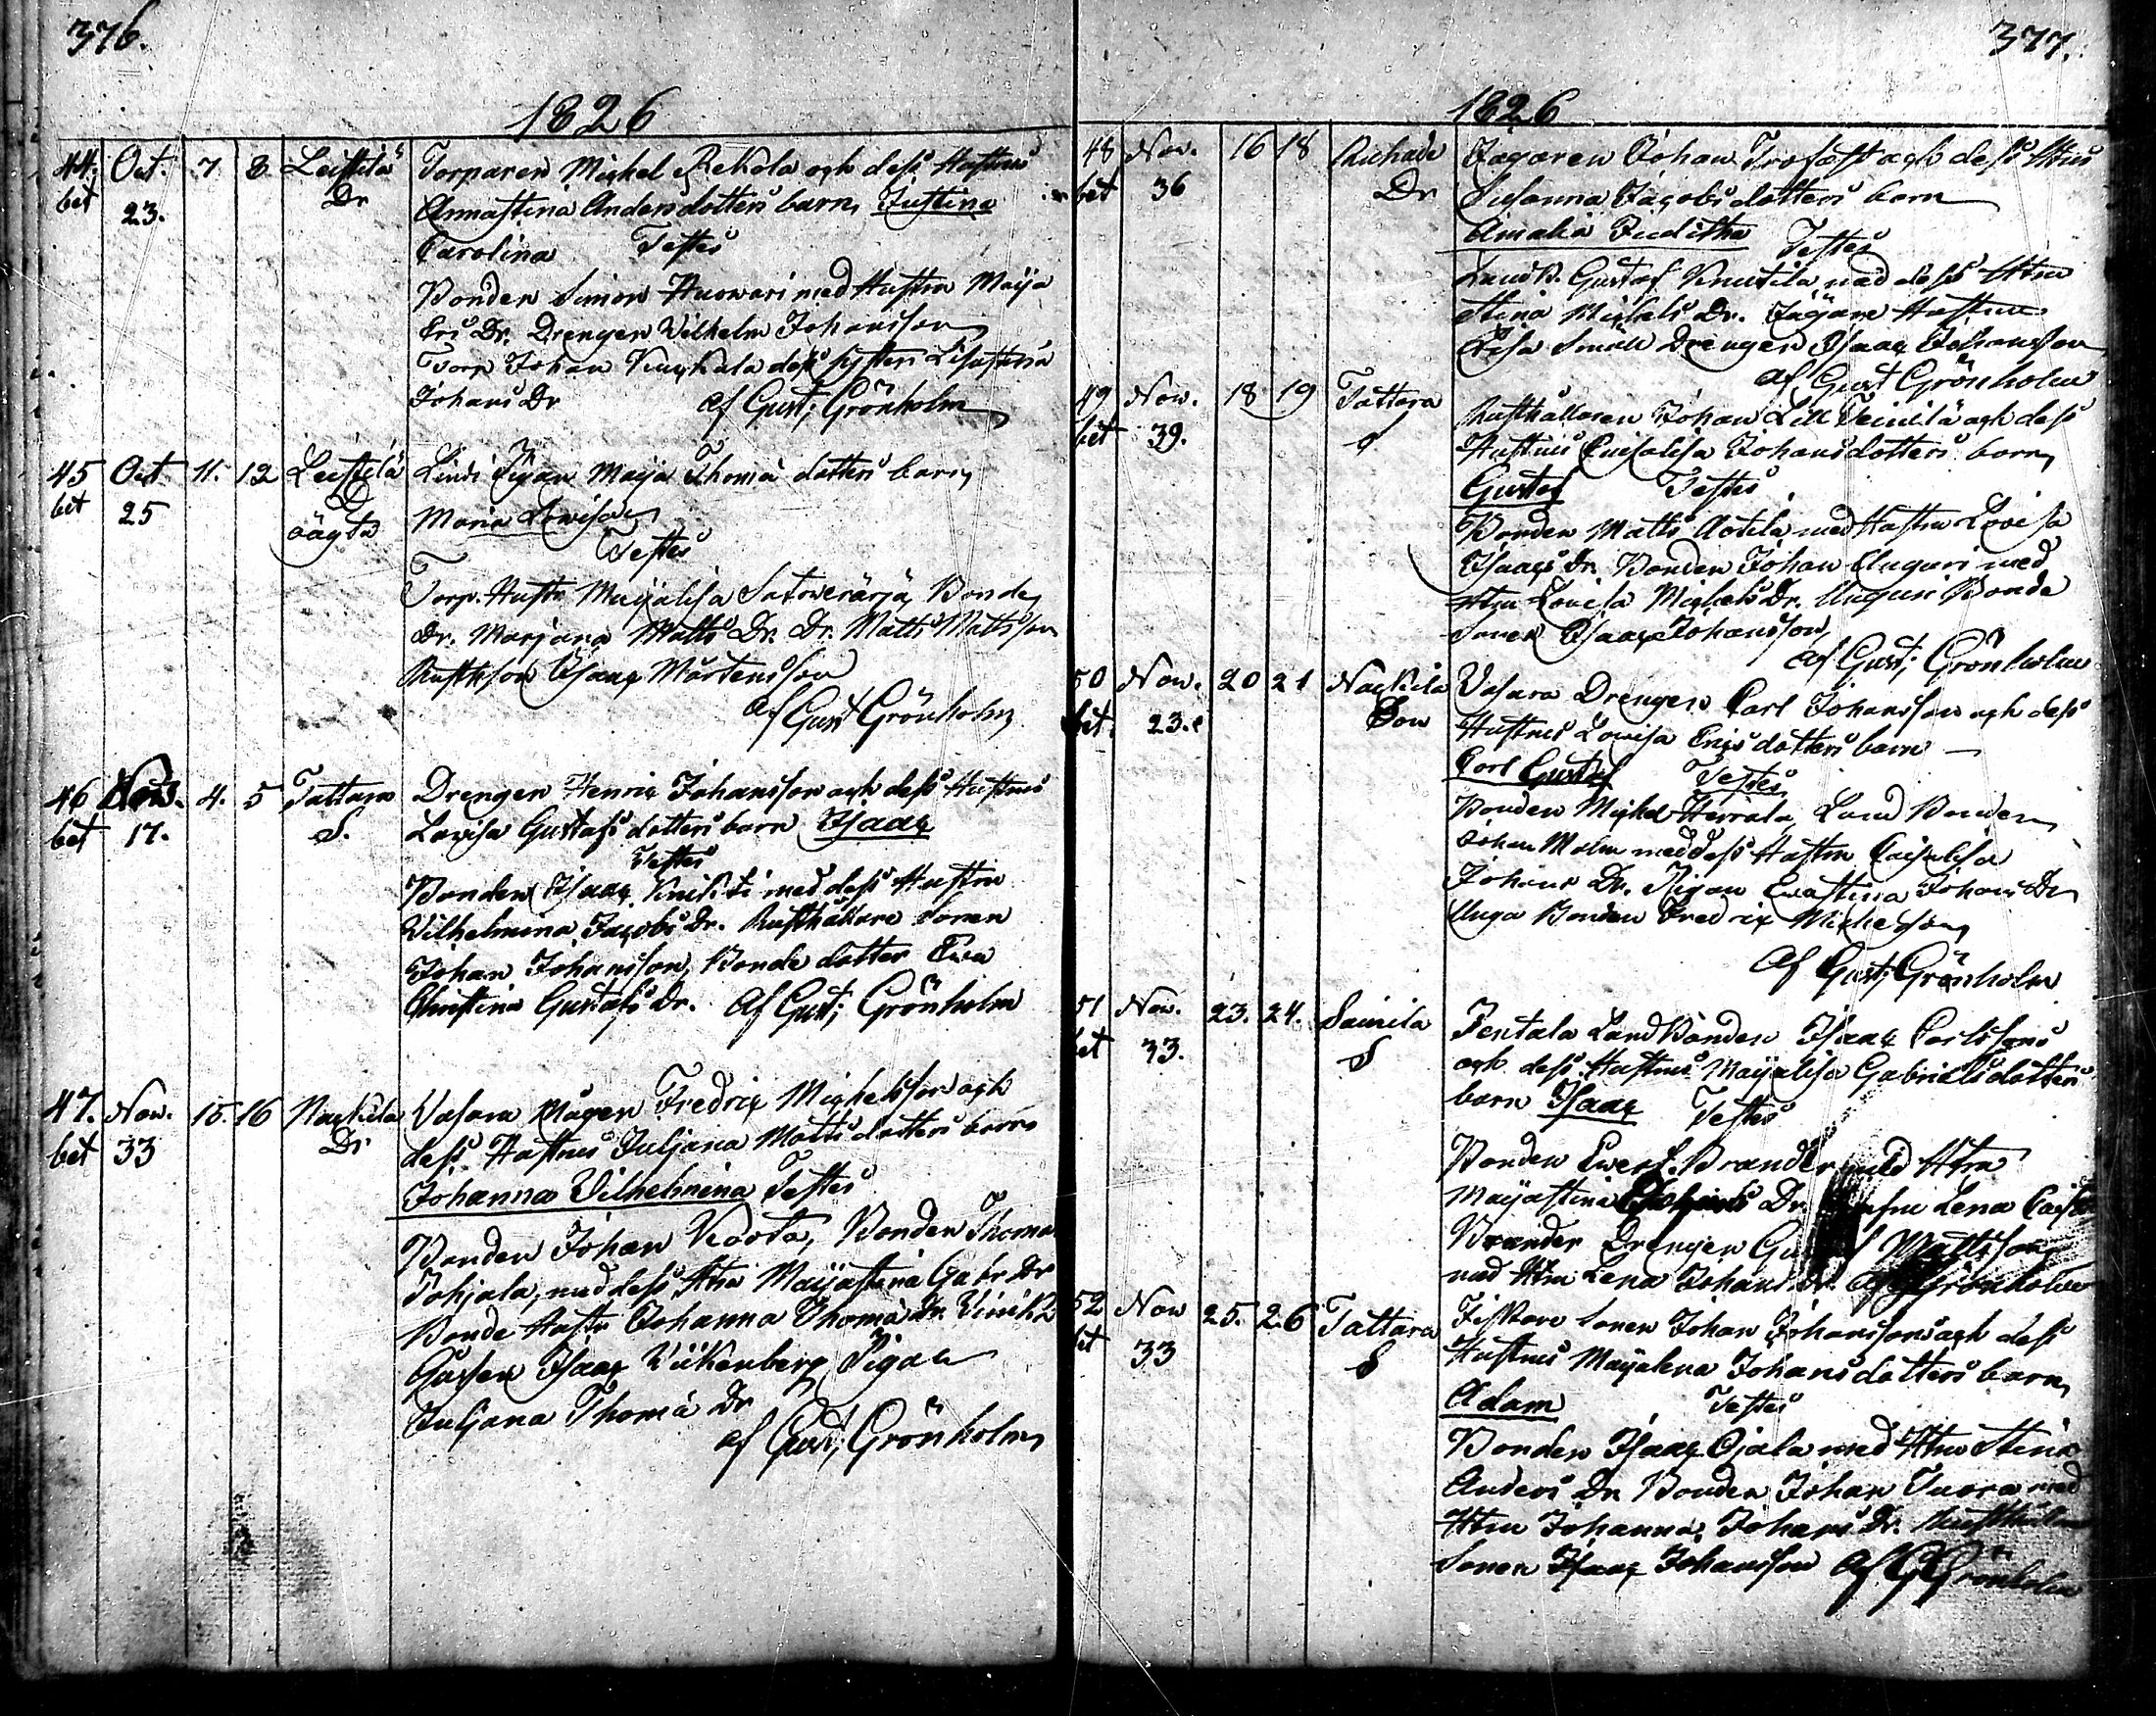 376.
1826
44. Oct. 7 8 Leistilä Torparen Michel Rekola och dess Hustrus
bet 23. Dr Annastina Andersdotters barn, Justina
Carolina Testes
Bonden Simon Huowari med Hustru Maija
Ers Dr. Drengen Wilhelm Johansson
Torp Johan dess syster Lisastina
Johans Dr af Gust; Grönholm
45 Oct. 11. 12 Leistilä Pigan Maija Thomæ dotters barn
bet 25 D Maria Lowisa
oägta Testes
Torp. Hustr Maijalisa Bonde
Dr. Marjana Matts Dr. Dr. Matts Mattsson
Isaac Mårtensson
af Gust Grönholm
46 Now. 4. 5 Tattara Drengen Henric Johansson och dess Hustrus
bet 17. S. Lovisa Gustafs dotters barn Isaac
Testes
Bonden Isaac med dess Hustru
Wilhelmina Jacobs Dr. Rusthållare Sonen
Johan Johansson, Bonde dotter Ewa
Christina Gustafs Dr. Af Gust; Grönholm
47. Now. 15. 16 Nackila Vasara Mågen Fredric Michelsson och
bet 33 Dr dess Hustrus Juljana Matts dotters barn
Johanna Wilhelmina Testes
Bonden Johan Bonden Thomas
Pohjala, med dess Htru Maijastina Gabr. Dr
Bonde Hustr Johanna Thomæ Dr.
Isaac Wikenberg, Pigan
Juljana Thomæ Dr
af Gust; Grönholm
377.
1826
48 Now. 16 18 Jägaren Johan Trofast och dess Htrus
bet 36 Dr Susanna Jacobs dotters barn
Amalia Juditha Testes
Landb. Gustaf Knutila med dess Htru
Stina Michels Dr. Jägare Hustrun
Lisa Drengen Isaac Johansson
af Gust Grönholm
49 Now. 18 19 Tattara Rusthållaren Johan Lill och dess
bet 39. S Hustrus Caisalisa Johansdotters barn
Gustaf Testes
Bonden Matts med Hustru Lovisa
Isaacs Dr. Bonden Johan Uuguri med
Htru Lovisa Michels Dr. Uuguri Bonde
Sonen Isaac Johansson,
af Gust; Grönholm
50 Now. 20 21 Nackila Vasara Drengen Carl Johansson och dess
bet. 23. Son Hustrus Lowisa Erics dotters barn
Carl Gustaf Testes
Bonden Michel Herrala, Land Bonden
Johan Malm med dess Hustru Caisalisa
Johans Dr. Pigan Ewastina Johans Dr
Unga Bonden Fredric Michelsson
Af Gust; Grönholm
51 Now. 23. 24. Sainila Pentala Landbonden Isaac Carlssons
bet 33. S och dess Hustrus Maijalisa Gabrielsdotters
barn Isaac Testes
Bonden Ewert Brander med Htru
Maijastina Dr. Lena Caisa
Brander Drengen Gustaf Mattsson
med Htru Lena Johans Dr. af G Grönholm
52 Now 25. 26 Tattara Fiskare Sonen Johan Johanssons och dess
bet 33 S Hustrus Maijalena Johansdotters barn
Adam Testes
Bonden Isaac Ojala med Htru Stina
Anders Dr. Bonden Johan Juora med
Htru Johanna Johans Dr. Rusthållare
Sonen Isaac Johansson Af G Grönholm